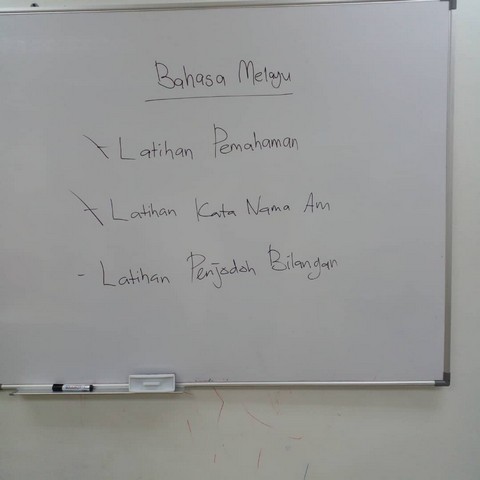 Bahasa Melayu
- Latihan Pemahaman
- Latihan Kata Nama Am
- Latihan Penjodoh Bilangan